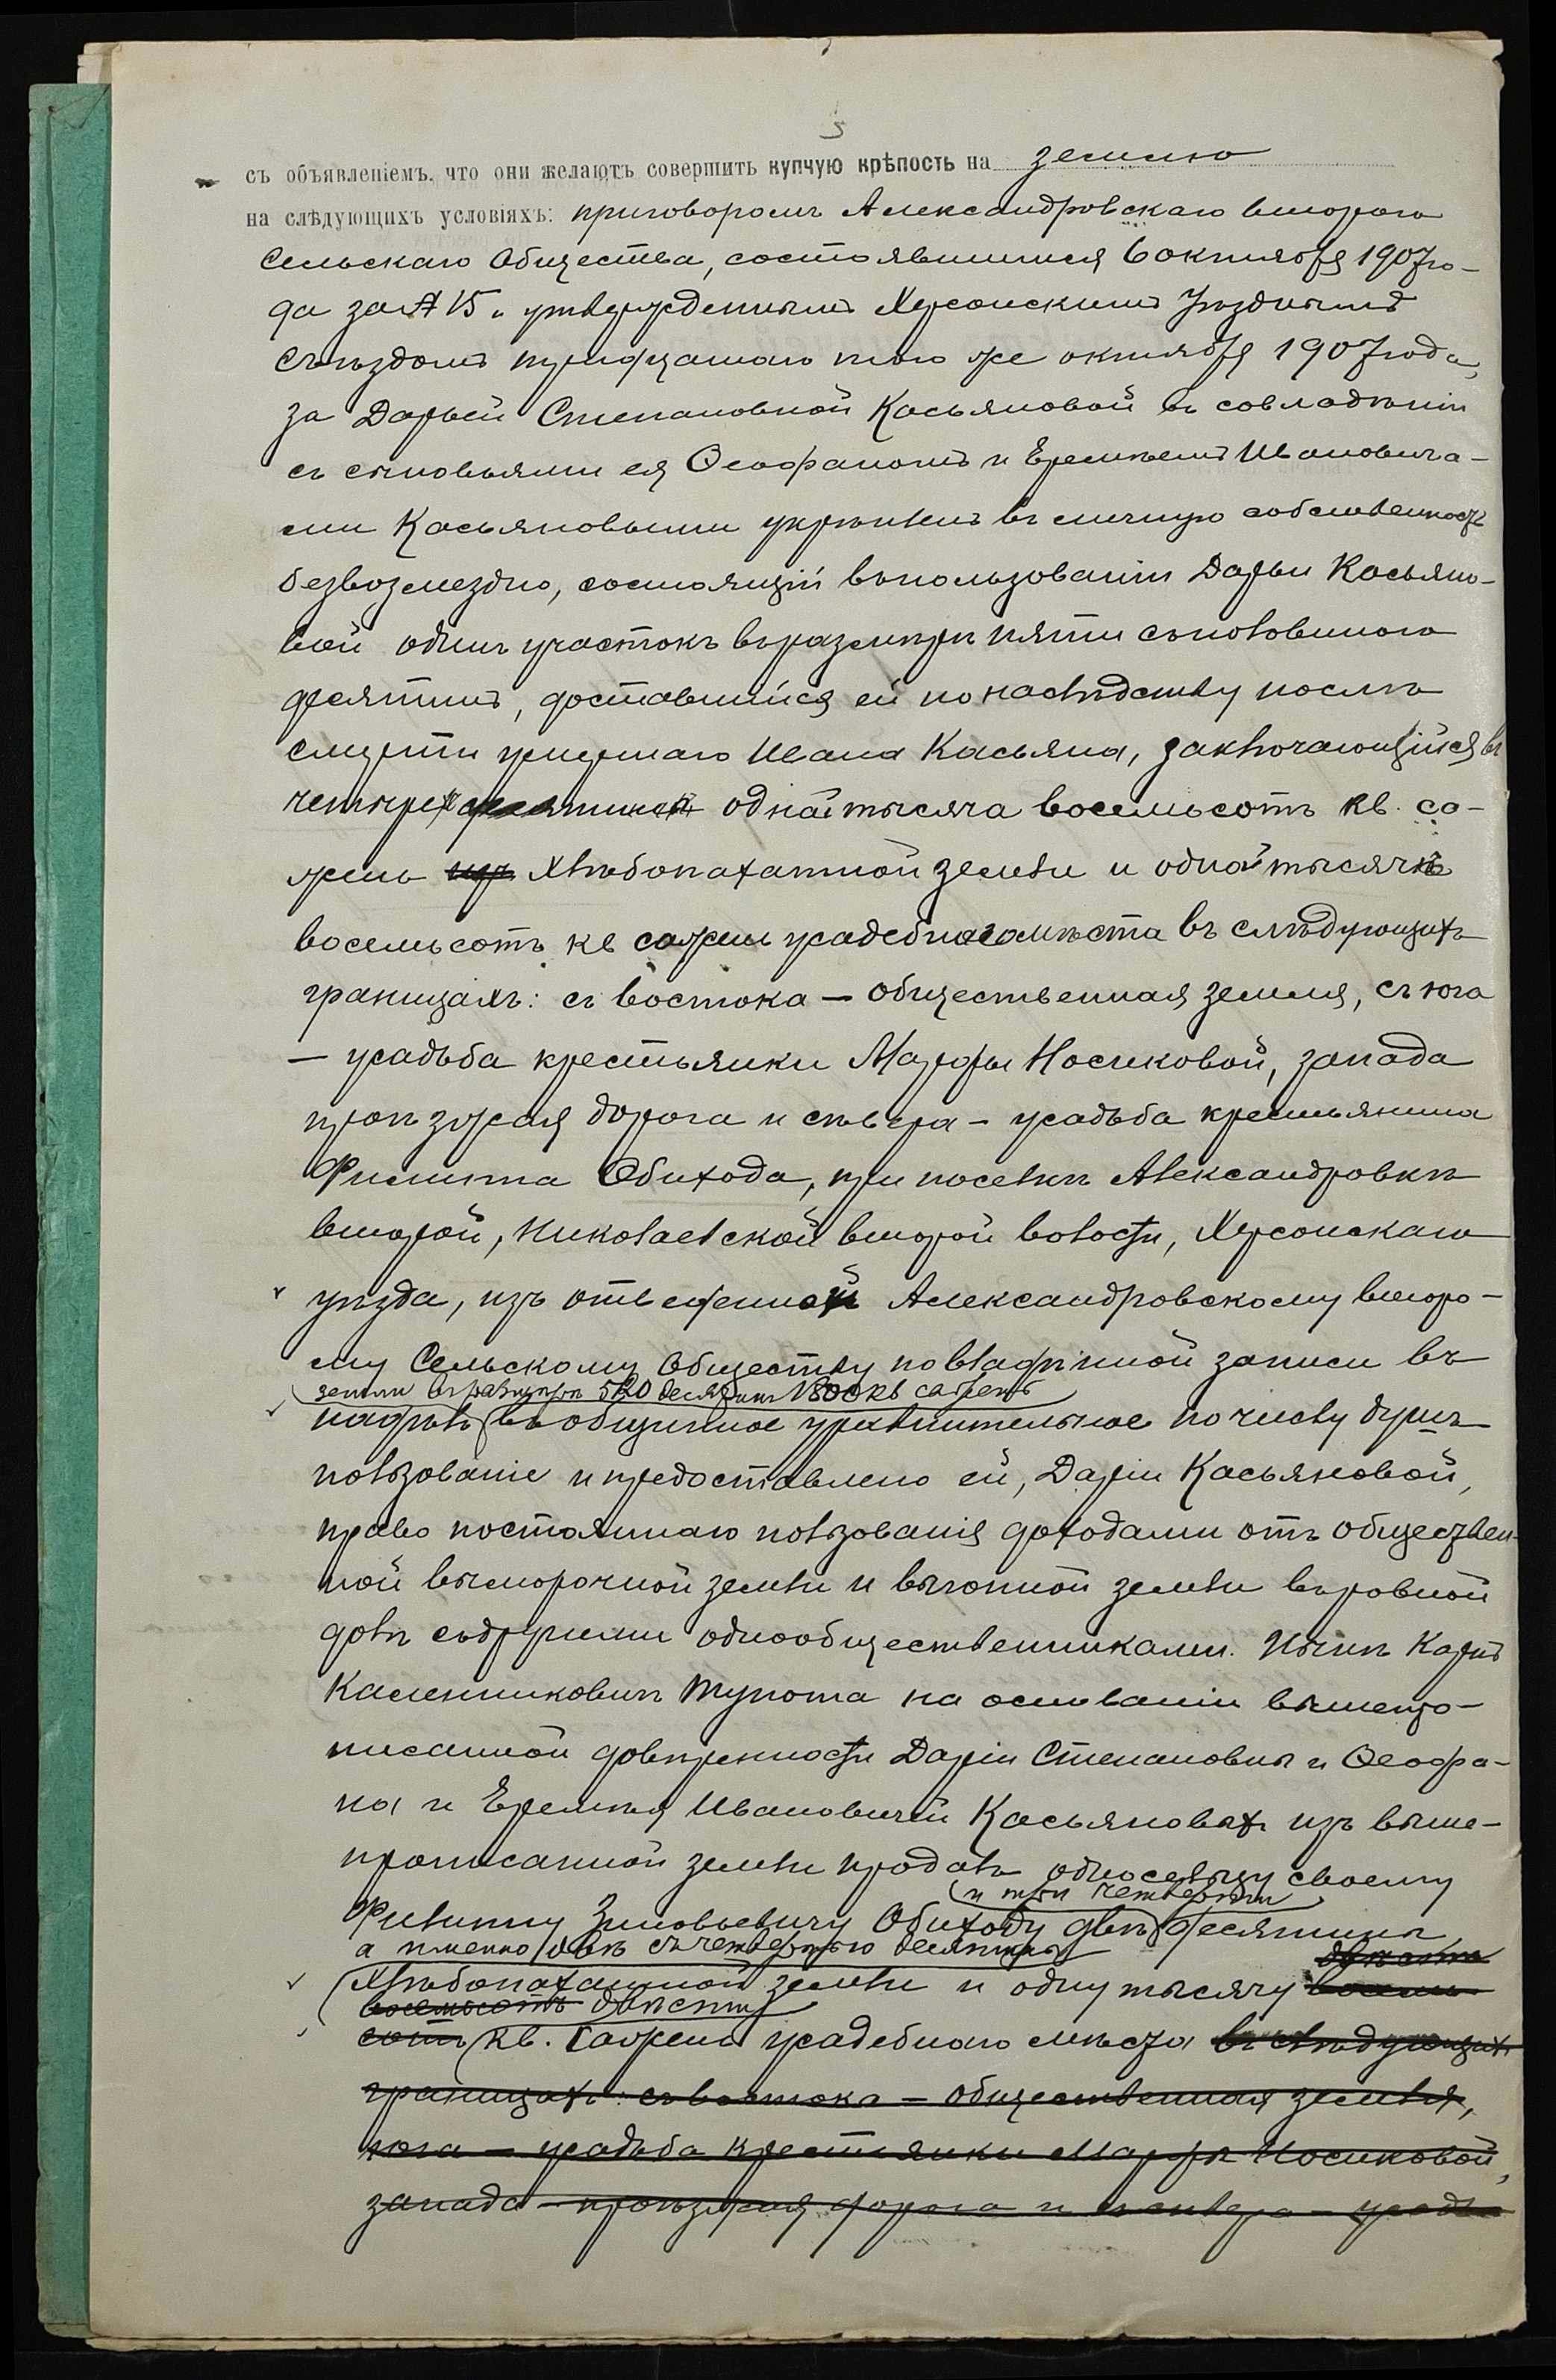 5
съ объявленіемъ, что они желаютъ совершить купчую крѣпость на землю
на слѣдующихъ условіяхъ: приговоромъ Александровскаго второго
Сельскаго Общества, состоявшимся 6 октября 1907 го-
да за № 15 и утвержденнымъ Херсонскимъ Уѣзднымъ
Съѣздомъ тридцатаго того же октября 1907 года,
за Дарьей Степановной Касьяновой въ совладѣніи
съ сыновьями ея Ѳеофаномъ и Еремѣемъ Ивановича-
ми Касьяновыми укрѣпленъ въ личную собственность
безвозмездно, состоящій въ пользованіи Дарьи Касьяно-
вой одинъ участокъ въ размѣрѣ пяти съ половиною
десятинъ, доставшійся ей по наслѣдству послѣ
смерти умершаго Ивана Касьяна, заключающійся въ
четырехъ десятинахъ одной тысяча восемьсотъ кв. са-
жень хлѣбопахатной земли и одной тысячѣ
восемьсотъ кв сажень усадебнаго мѣста въ слѣдующихъ
границахъ: съ востока — общественная земля, съ юга
— усадьба крестьянки Марфы Носиковой, запада
проѣзжая дорога и сѣвера — усадьба крестьянина
Филиппа Обихода, при поселкѣ Александровкѣ
второй, Николаевской второй волости, Херсонскаго
уѣзда, изъ отведенной Александровскому второ-
му Сельскому Обществу по владѣнной записи въ
земли въ размѣрѣ 520 десятинъ 1800 кв сажень
надѣлъ въ общинное уравнительное по числу душъ
пользованіе и предоставлено ей, Даріи Касьяновой,
право постояннаго пользованія доходами отъ обществен-
ной выморочной земли и выгонной земли въ ровной
долѣ съ другими однообщественниками. Нынѣ Карпъ
Калениковичъ Тупота на основаніи вышепро-
писанной довѣренности Даріи Степановны и Ѳеофа-
на и Еремѣя Ивановичей Касьяновыхъ изъ выше-
прописанной земли продалъ односельцу своему
и три четверти
Филиппу Зиновьевичу Обиходу двѣ десятины
а именно двѣ съ четвертью десятины
двѣсти
хлѣбопахатной земли и одну тысячу восемь-
восемьсотъ двѣсти
сотъ кв. сажень усадебнаго мѣста въ слѣдующихъ
границахъ: съ востока — общественная земля,
юга — усадьба крестьянки Марфы Носиковой,
запада — проѣзжая дорога и сѣвера — усадьба